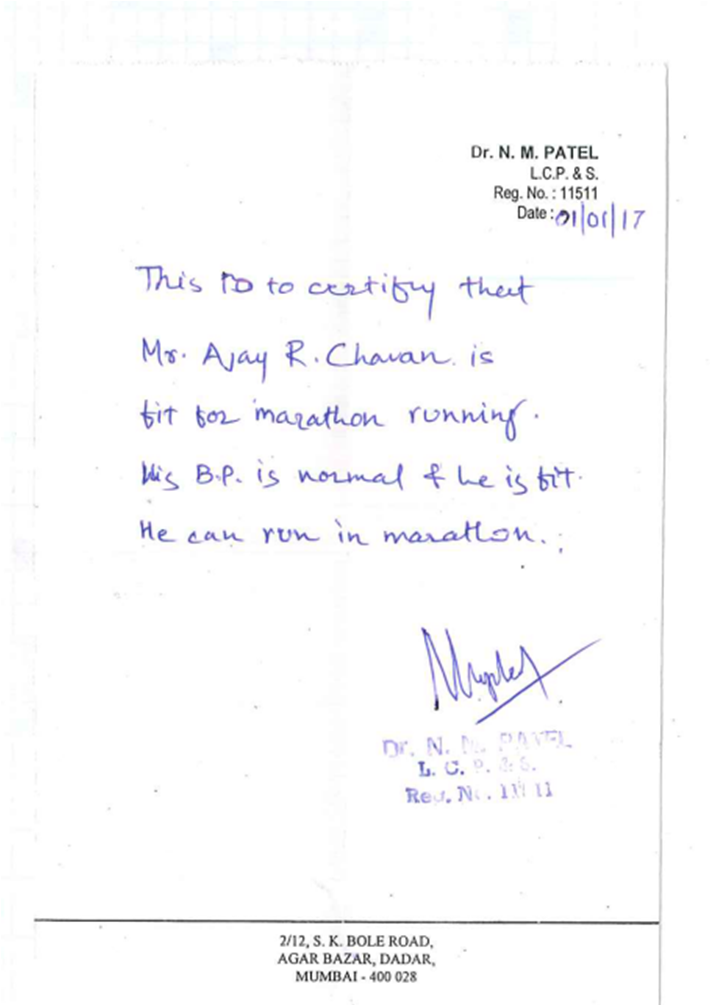 Dr. N. M. PATEL
L.C.P. & S.
Reg. No. : 11511
Date : 01/01/17
This is to certify that
Mr. Ajay R. Chavan. is
fit for marathon running.
His B.P. is normal & he is fit.
He can run in marathon.
Dr. N. M. PATEL
L. C. P. & S.
Reg. No. 11511
2/12, S. K. BOLE ROAD,
AGAR BAZAR, DADAR,
MUMBAI - 400 028